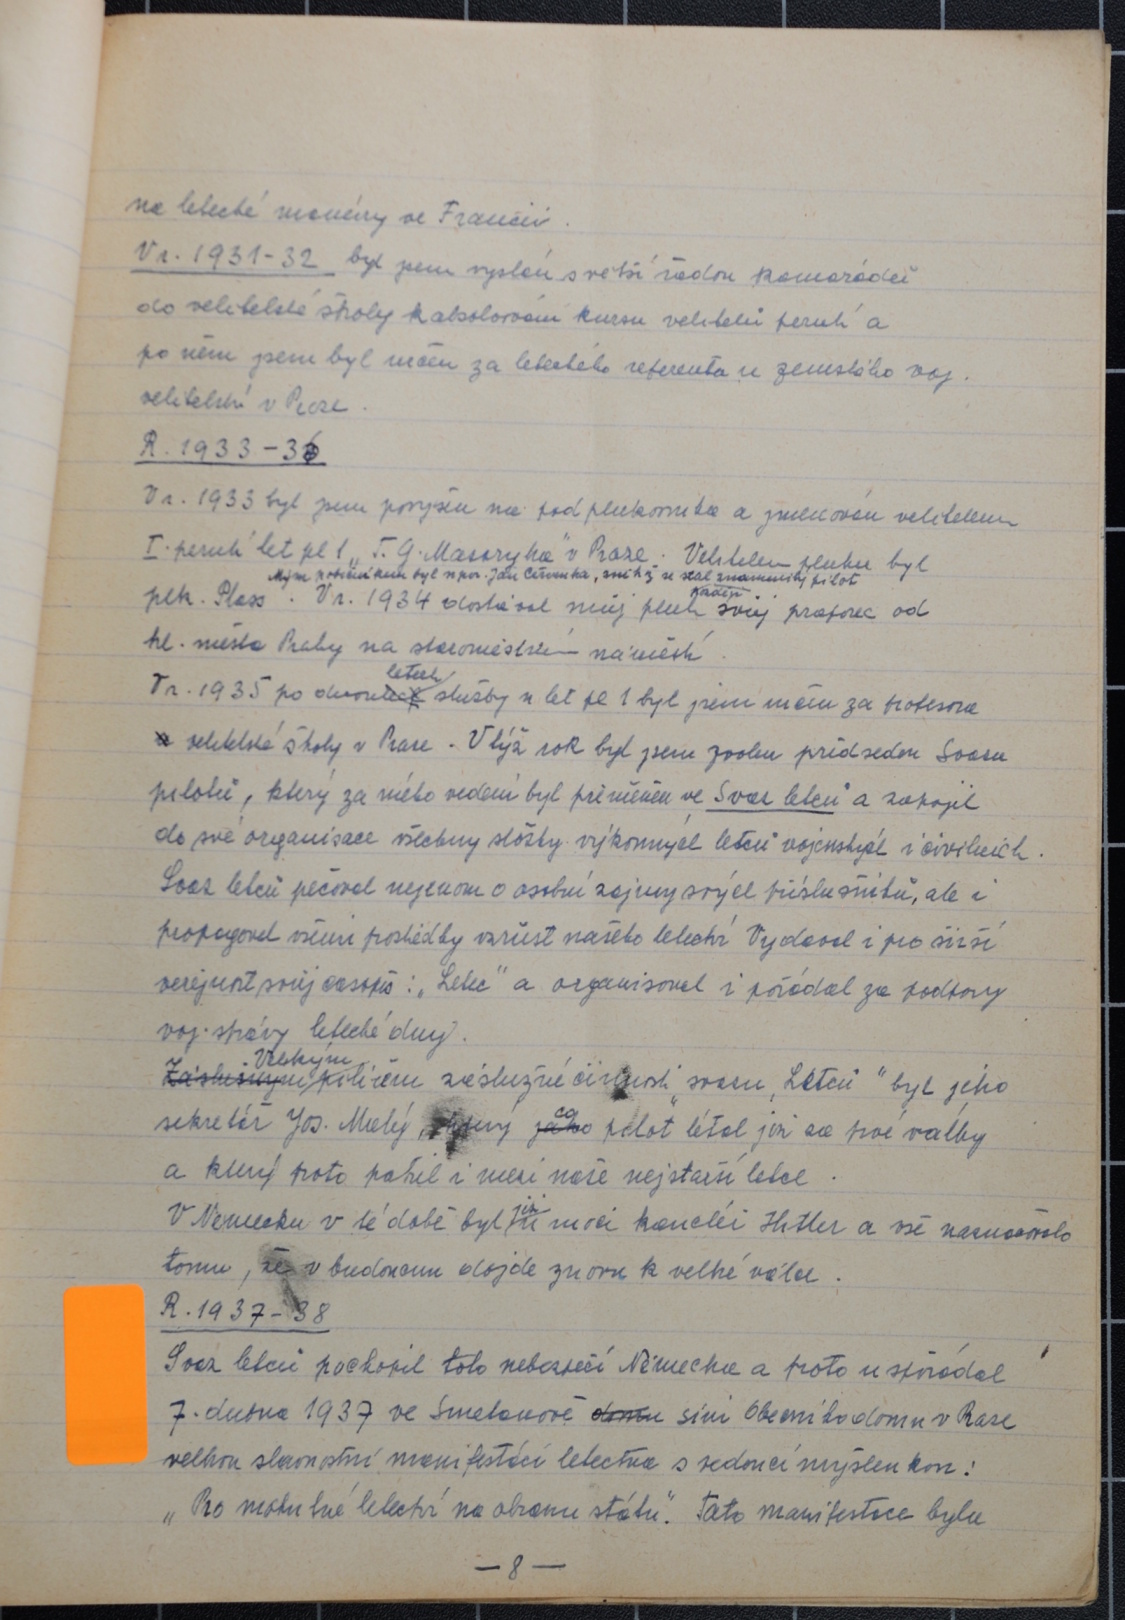 na letecké manévry ve Francii.
V r. 1931-32 byl jsem vyslán s větší řadou kamarádů
do velitelské školy k absolování kursu velitelů perutí a
po něm jsem byl určen za leteckého referenta u zemského voj.
velitelství v Praze.
R. 1933-36
V r. 1933 byl jsem povýšen na podplukovníka a jmenován velitelem
I. peruti let pl 1 „T. G. Masaryka" v Praze. Velitelem pluku byl
Mým pobočníkem byl npor. Jan Červenka, z něhož se stal znamenitý pilot
plk. Plass. V r. 1934 dostával můj pluk svůj praporec od
hl. města Prahy na staroměstském náměstí.
letech
V r. 1935 po dvou služby u let pl 1 byl jsem určen za profesora
velitelské školy v Praze. V týž rok byl jsem zvolen předsedou Svazu
pilotů, který za mého vedení byl přeměněn ve Svaz letců a zapojil
do své organisace všechny složky výkonných letců vojenských i civilních.
Svaz letců pečoval nejenom o osobní zájmy svých příslušníků, ale i
propagoval všemi prostředky vzrůst našeho letectví Vydával i pro širší
veřejnost svůj časopis: „Letec" a organisoval i pořádal za podpory
voj. správy letecké dny.
Velkým
Záslužným pilířem záslužné činnosti svazu „Letců" byl jeho
co
sekretář Jos. Malý, který jako pilot létal již za prvé války
a který proto patřil i mezi naše nejstarší letce.
již
V Německu v té době byl u moci kancléř Hitler a vše nasvědčovalo
tomu, že v budoucnu dojde znovu k velké válce.
R. 1937-38
Svaz letců pochopil toto nebezpečí Německa a proto uspořádal
7. dubna 1937 ve Smetanově domu síni Obecního domu v Praze
velkou slavnostní manifestaci letectva s vedoucí myšlenkou:
„Pro mohutné letectví na obranu státu". Tato manifestace byla
— 8 —